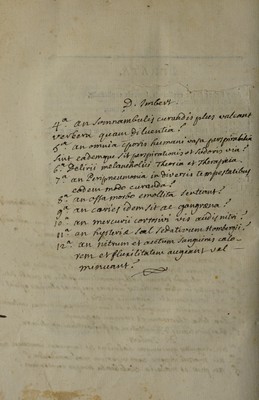 D. Imbert.
4ª. an somnambulis curandis plus valeant
verbera quam diluentia?
5ª. an omnia cporis humani vasa perspirabilia
sint eademque sit perspirationis et sudoris via?
6ª. Deliriis melancholici Theoria et Therapeia.
7ª. an Peripneumonia in diversis tempestatibus
eodem modo curanda?
8ª. an ossa morbo emollita sentiant?
9ª. an caries idem sit ac gangræna?
10ª. an mercurii cortonii vis audienda?
11ª. an hysteriæ sal sedativum Hombergii?
12ª. an nitrum et acetum sanguinis calo-
rem et fluiditatem augeant vel
minuant?